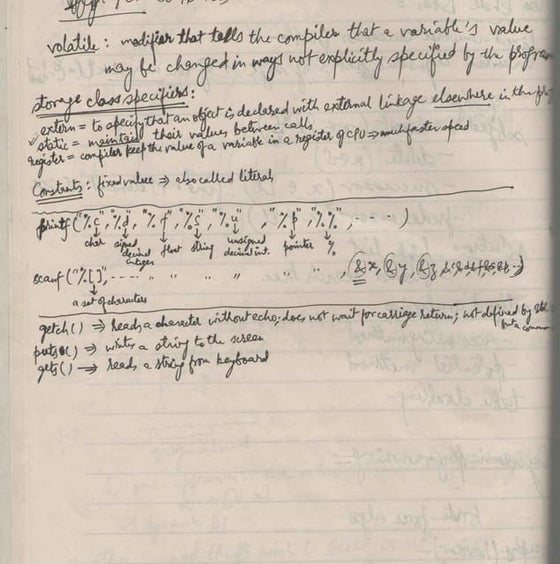 volatile : modifier that tells the compiler that a variable's value
may be changed in ways not explicitly specified by the program
storage class specifiers :
extern = to specify that an object is declared with external linkage elsewhere in the
static = maintain their values between calls
register = compiler keep the value of a variable in a register of CPU => much faster speed
Constants : fixed value => also called literals
printf ("%c", "%d", "%f", "%s", "%u", "%p", "%%", ------ )
char signed decimal integer float string unsigned decimal int. pointer %
scanf ("%[]", ---- " " " " " " , &x, &y, &z,
a set of characters
getch() => Reads a character without echo; does not wait for carriage return; not defined by
but a common
puts() => writes a string to the screen
gets() => reads a string from keyboard